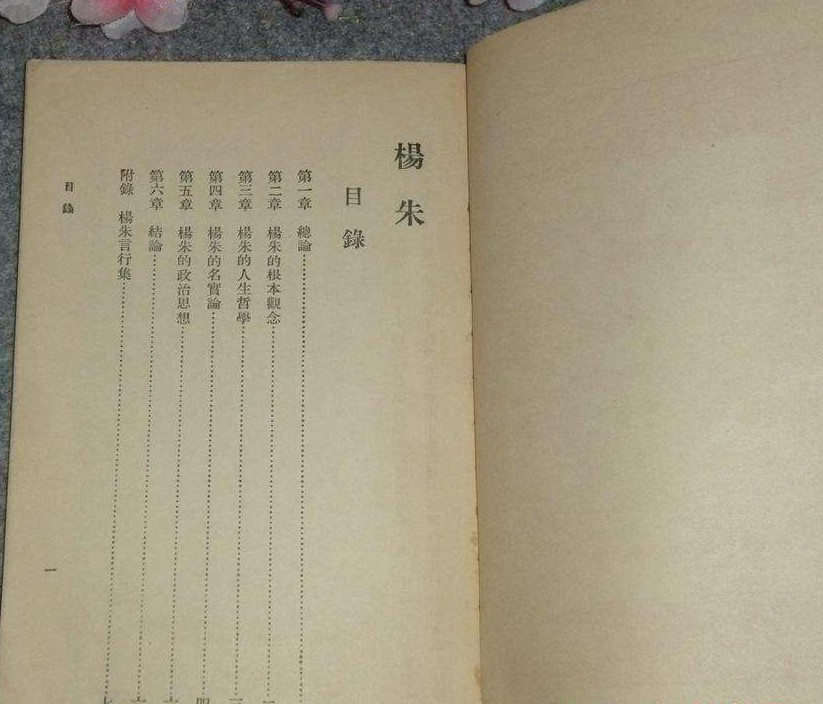 楊朱
目錄
第一章 總論
第二章 楊朱的根本觀念
第三章 楊朱的人生哲學
第四章 楊朱的名實論
第五章 楊朱的政治思想
第六章 結論
附錄 楊朱言行集
目錄
一